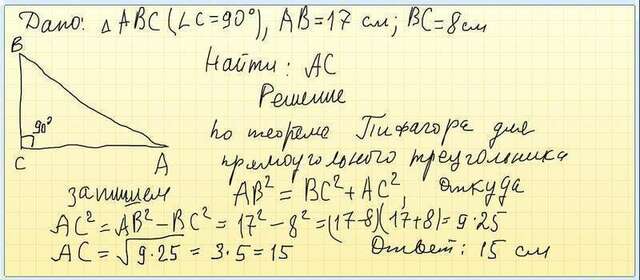 Дано: △ABC (∠C=90°), AB=17 см; BC=8 см
B
Найти: AC
Решение
90°
C
A
по теорема Пифагора для
прямоугольного треугольника
запишем AB² = BC² + AC², откуда
AC² = AB² - BC² = 17² - 8² = (17-8)(17+8) = 9·25
AC = √9·25 = 3·5 = 15 Ответ: 15 см